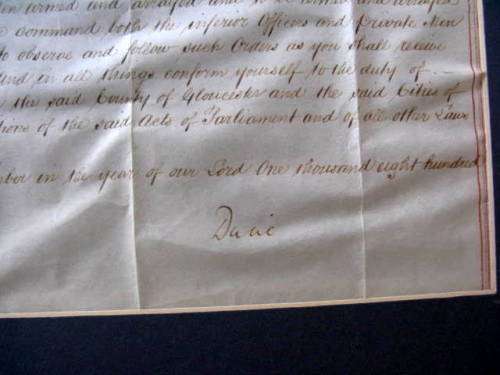 en armed and arrayed and to be armed and arrayed
command both the inferior Officers and private Men
to observe and follow such Orders as you shall receive
and in all things conform yourself to the duty of
the said County of Gloucester and the said Cities of
tions of the said Acts of Parliament and of all other Laws
ber in the year of our Lord One thousand eight hundred
Ducie